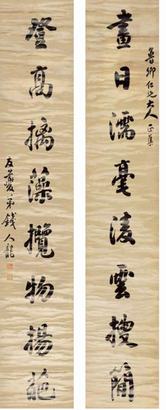 魯卿仁兄大人正
晝日濡毫凌雲授簡
登高摛藻攬物揚葩
弟錢人龍